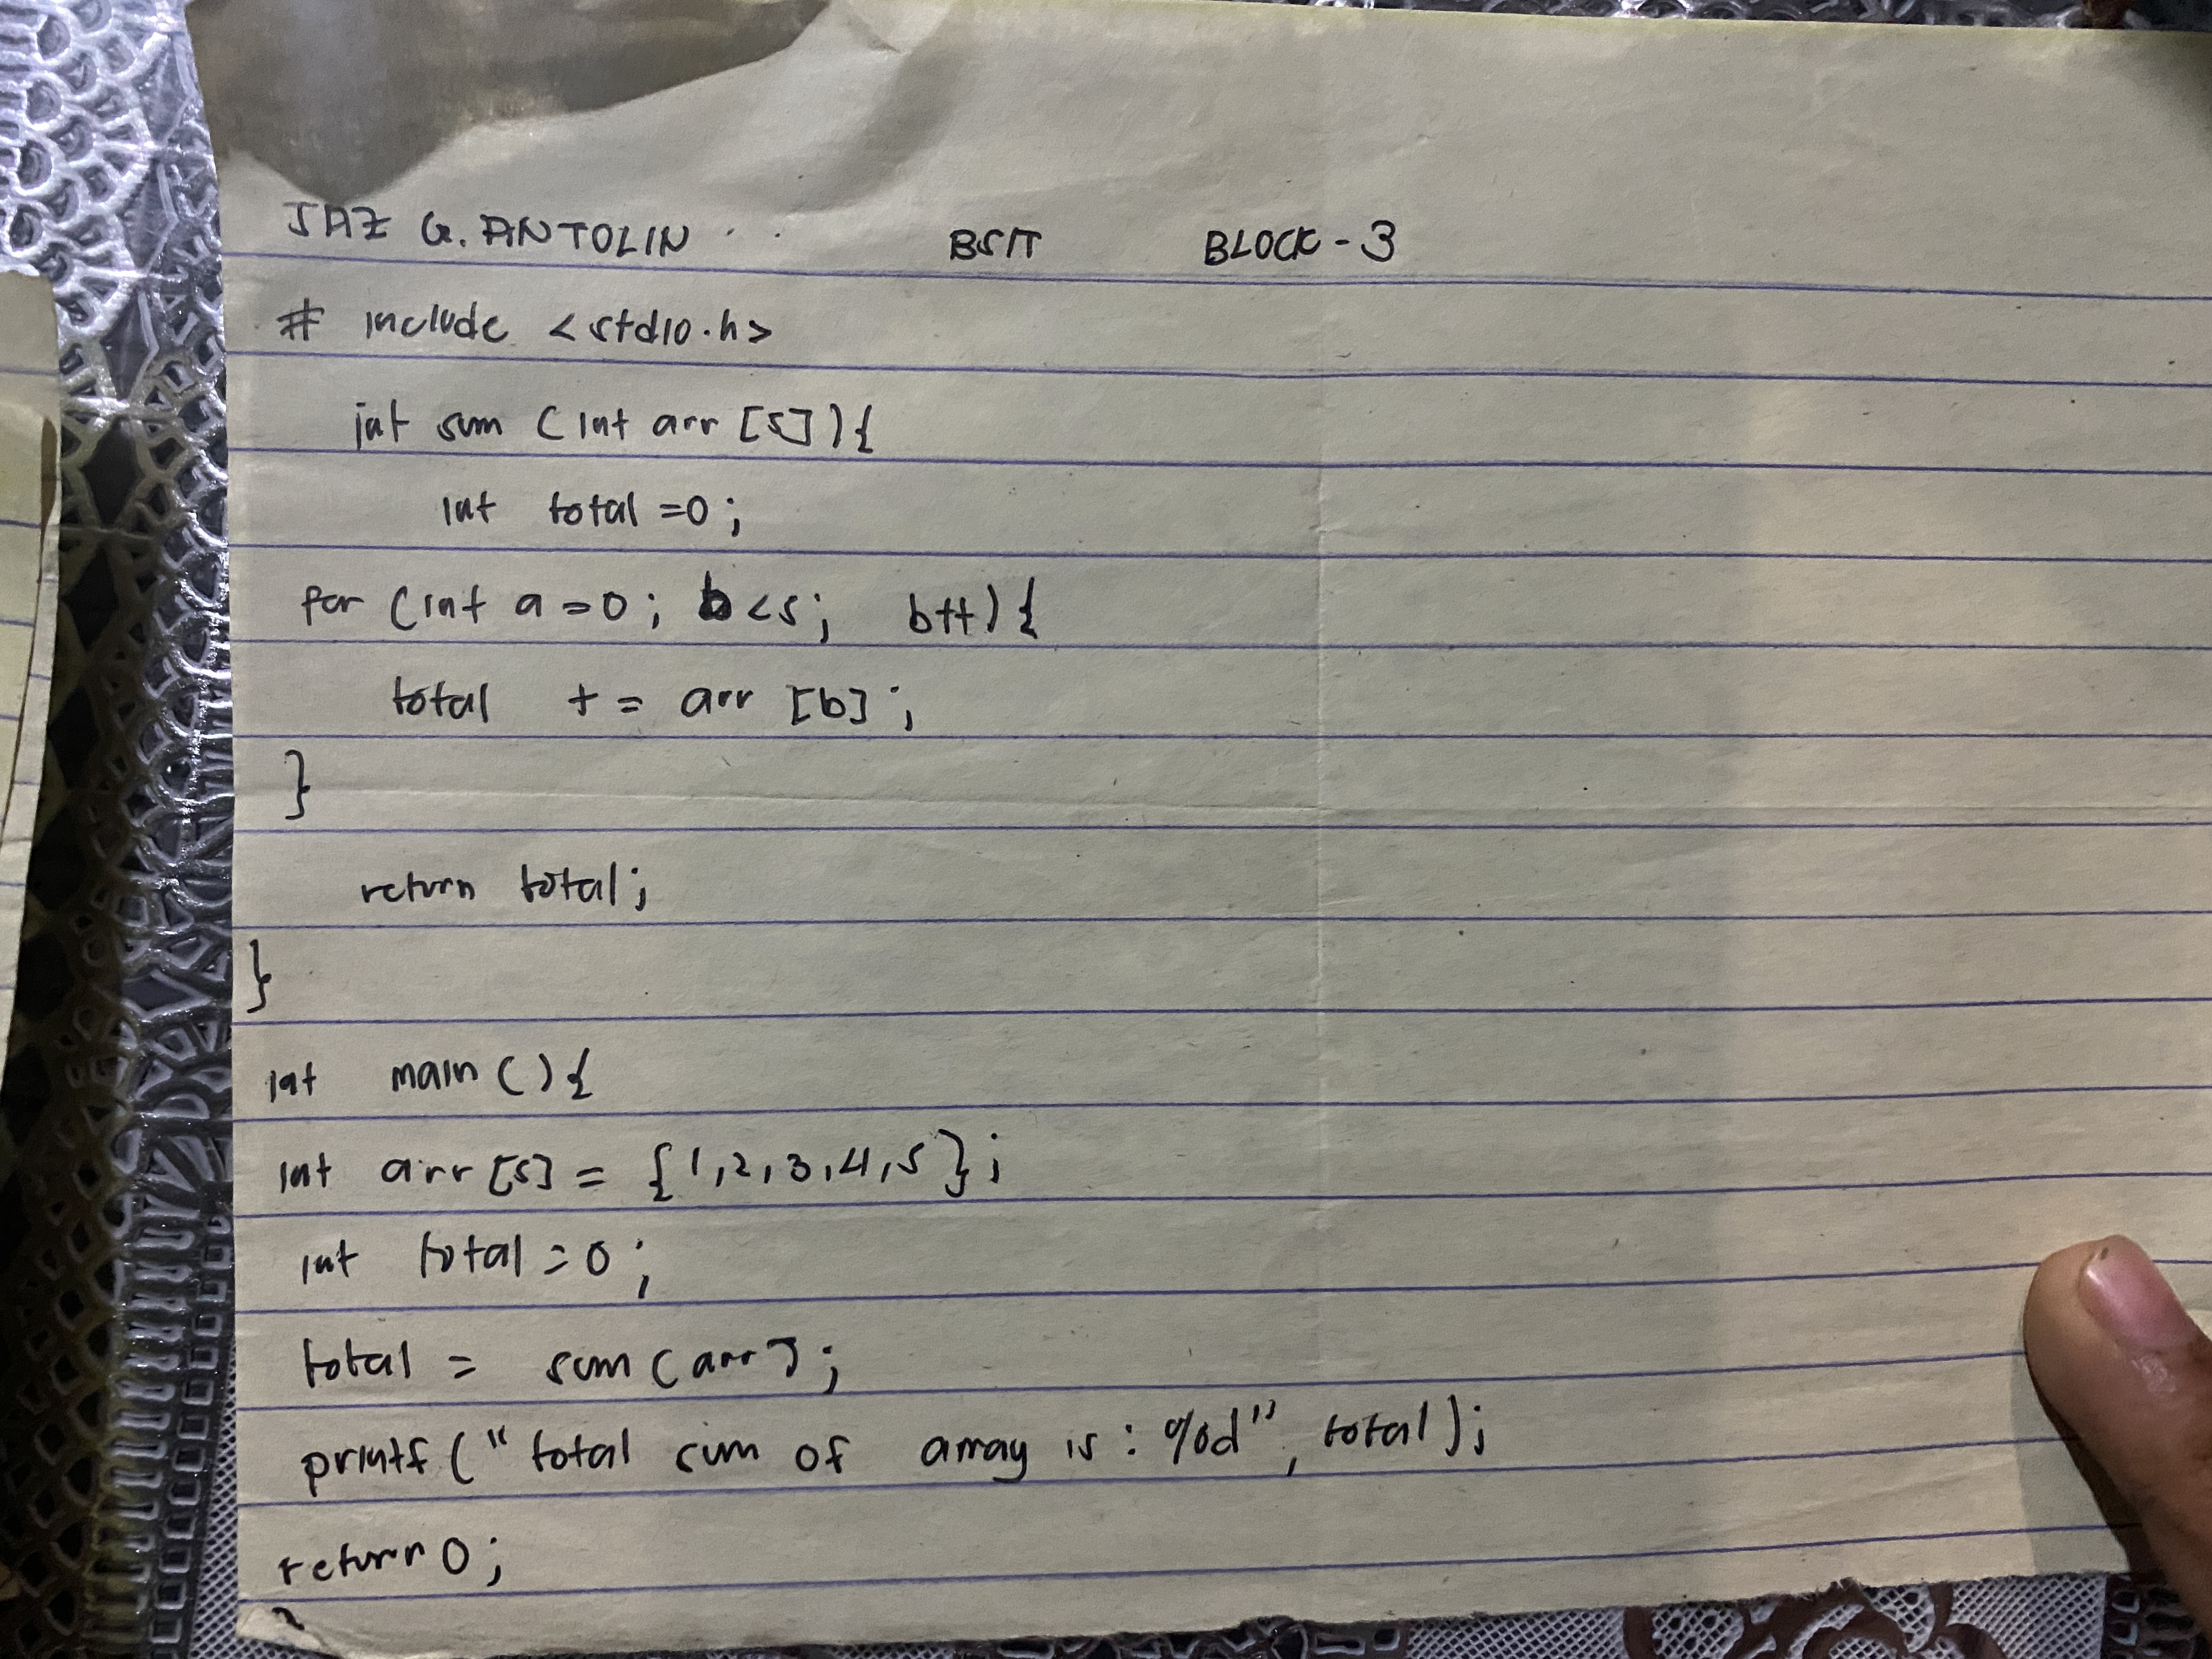 JAZ G. ANTOLIN BSIT BLOCK-3
# include <stdio.h>
int sum (int arr [5]){
int total =0;
for (int a=0; b<5; b++){
total += arr [b];
}
return total;
}
int main(){
int arr [5] = {1,2,3,4,5};
int total = 0;
total = sum(arr);
printf("total sum of array is: %d", total);
return 0;
}